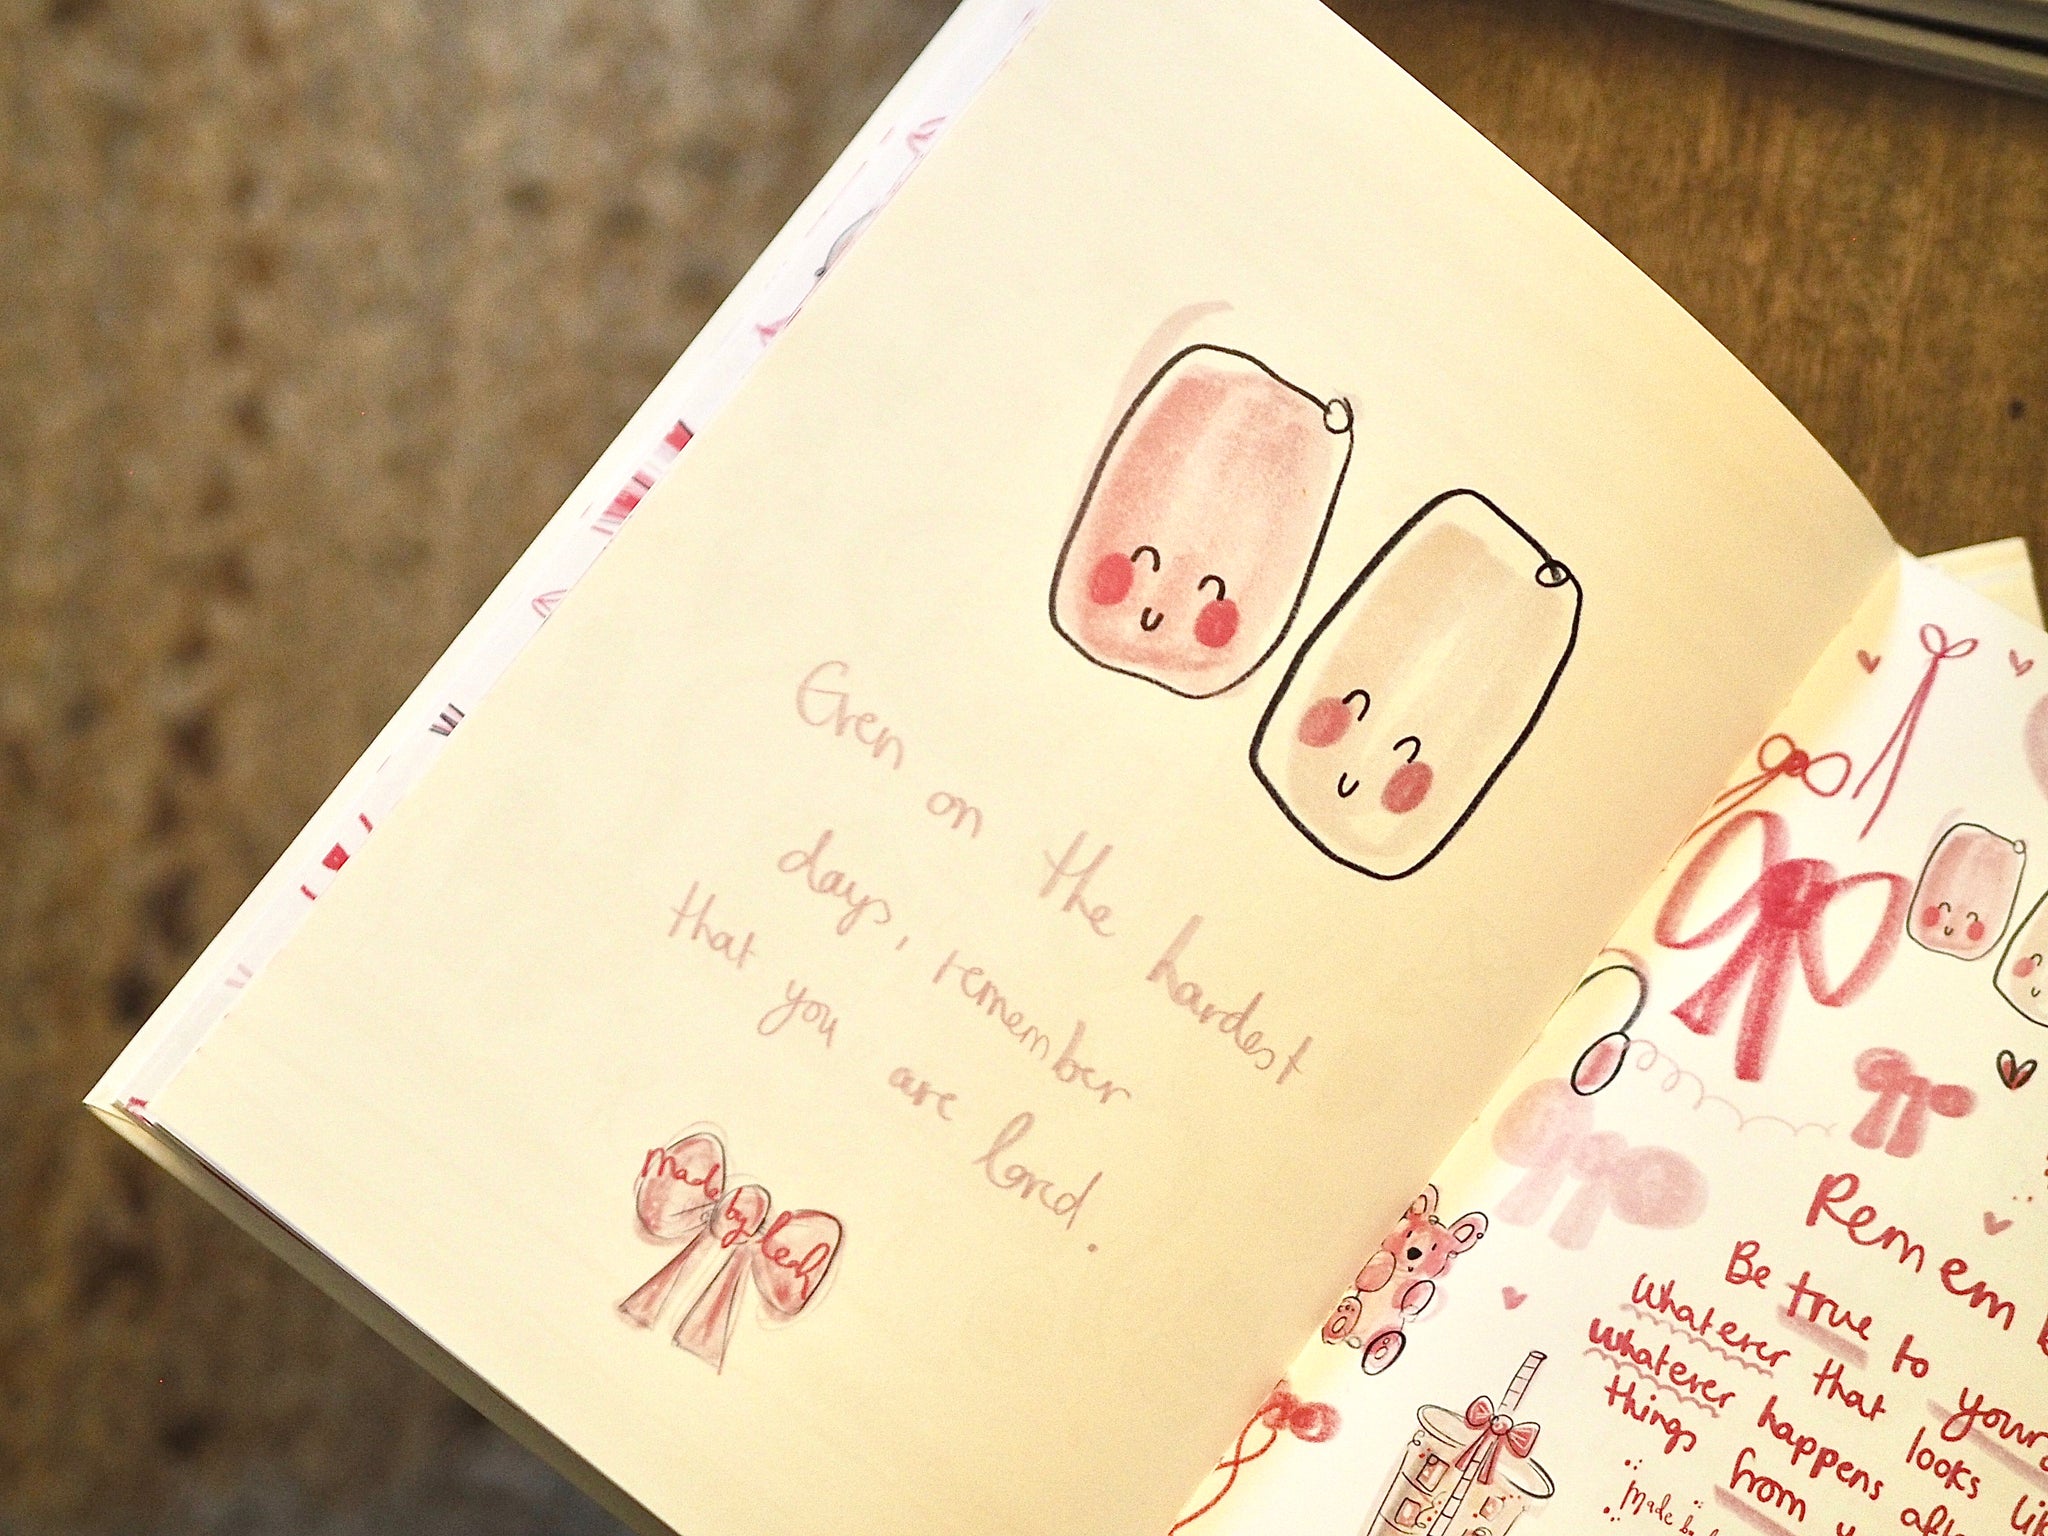 Even on the hardest
days, remember
that you are loved.
made by leah
Be true to
Whatever that looks
Whatever happens
things from
Made